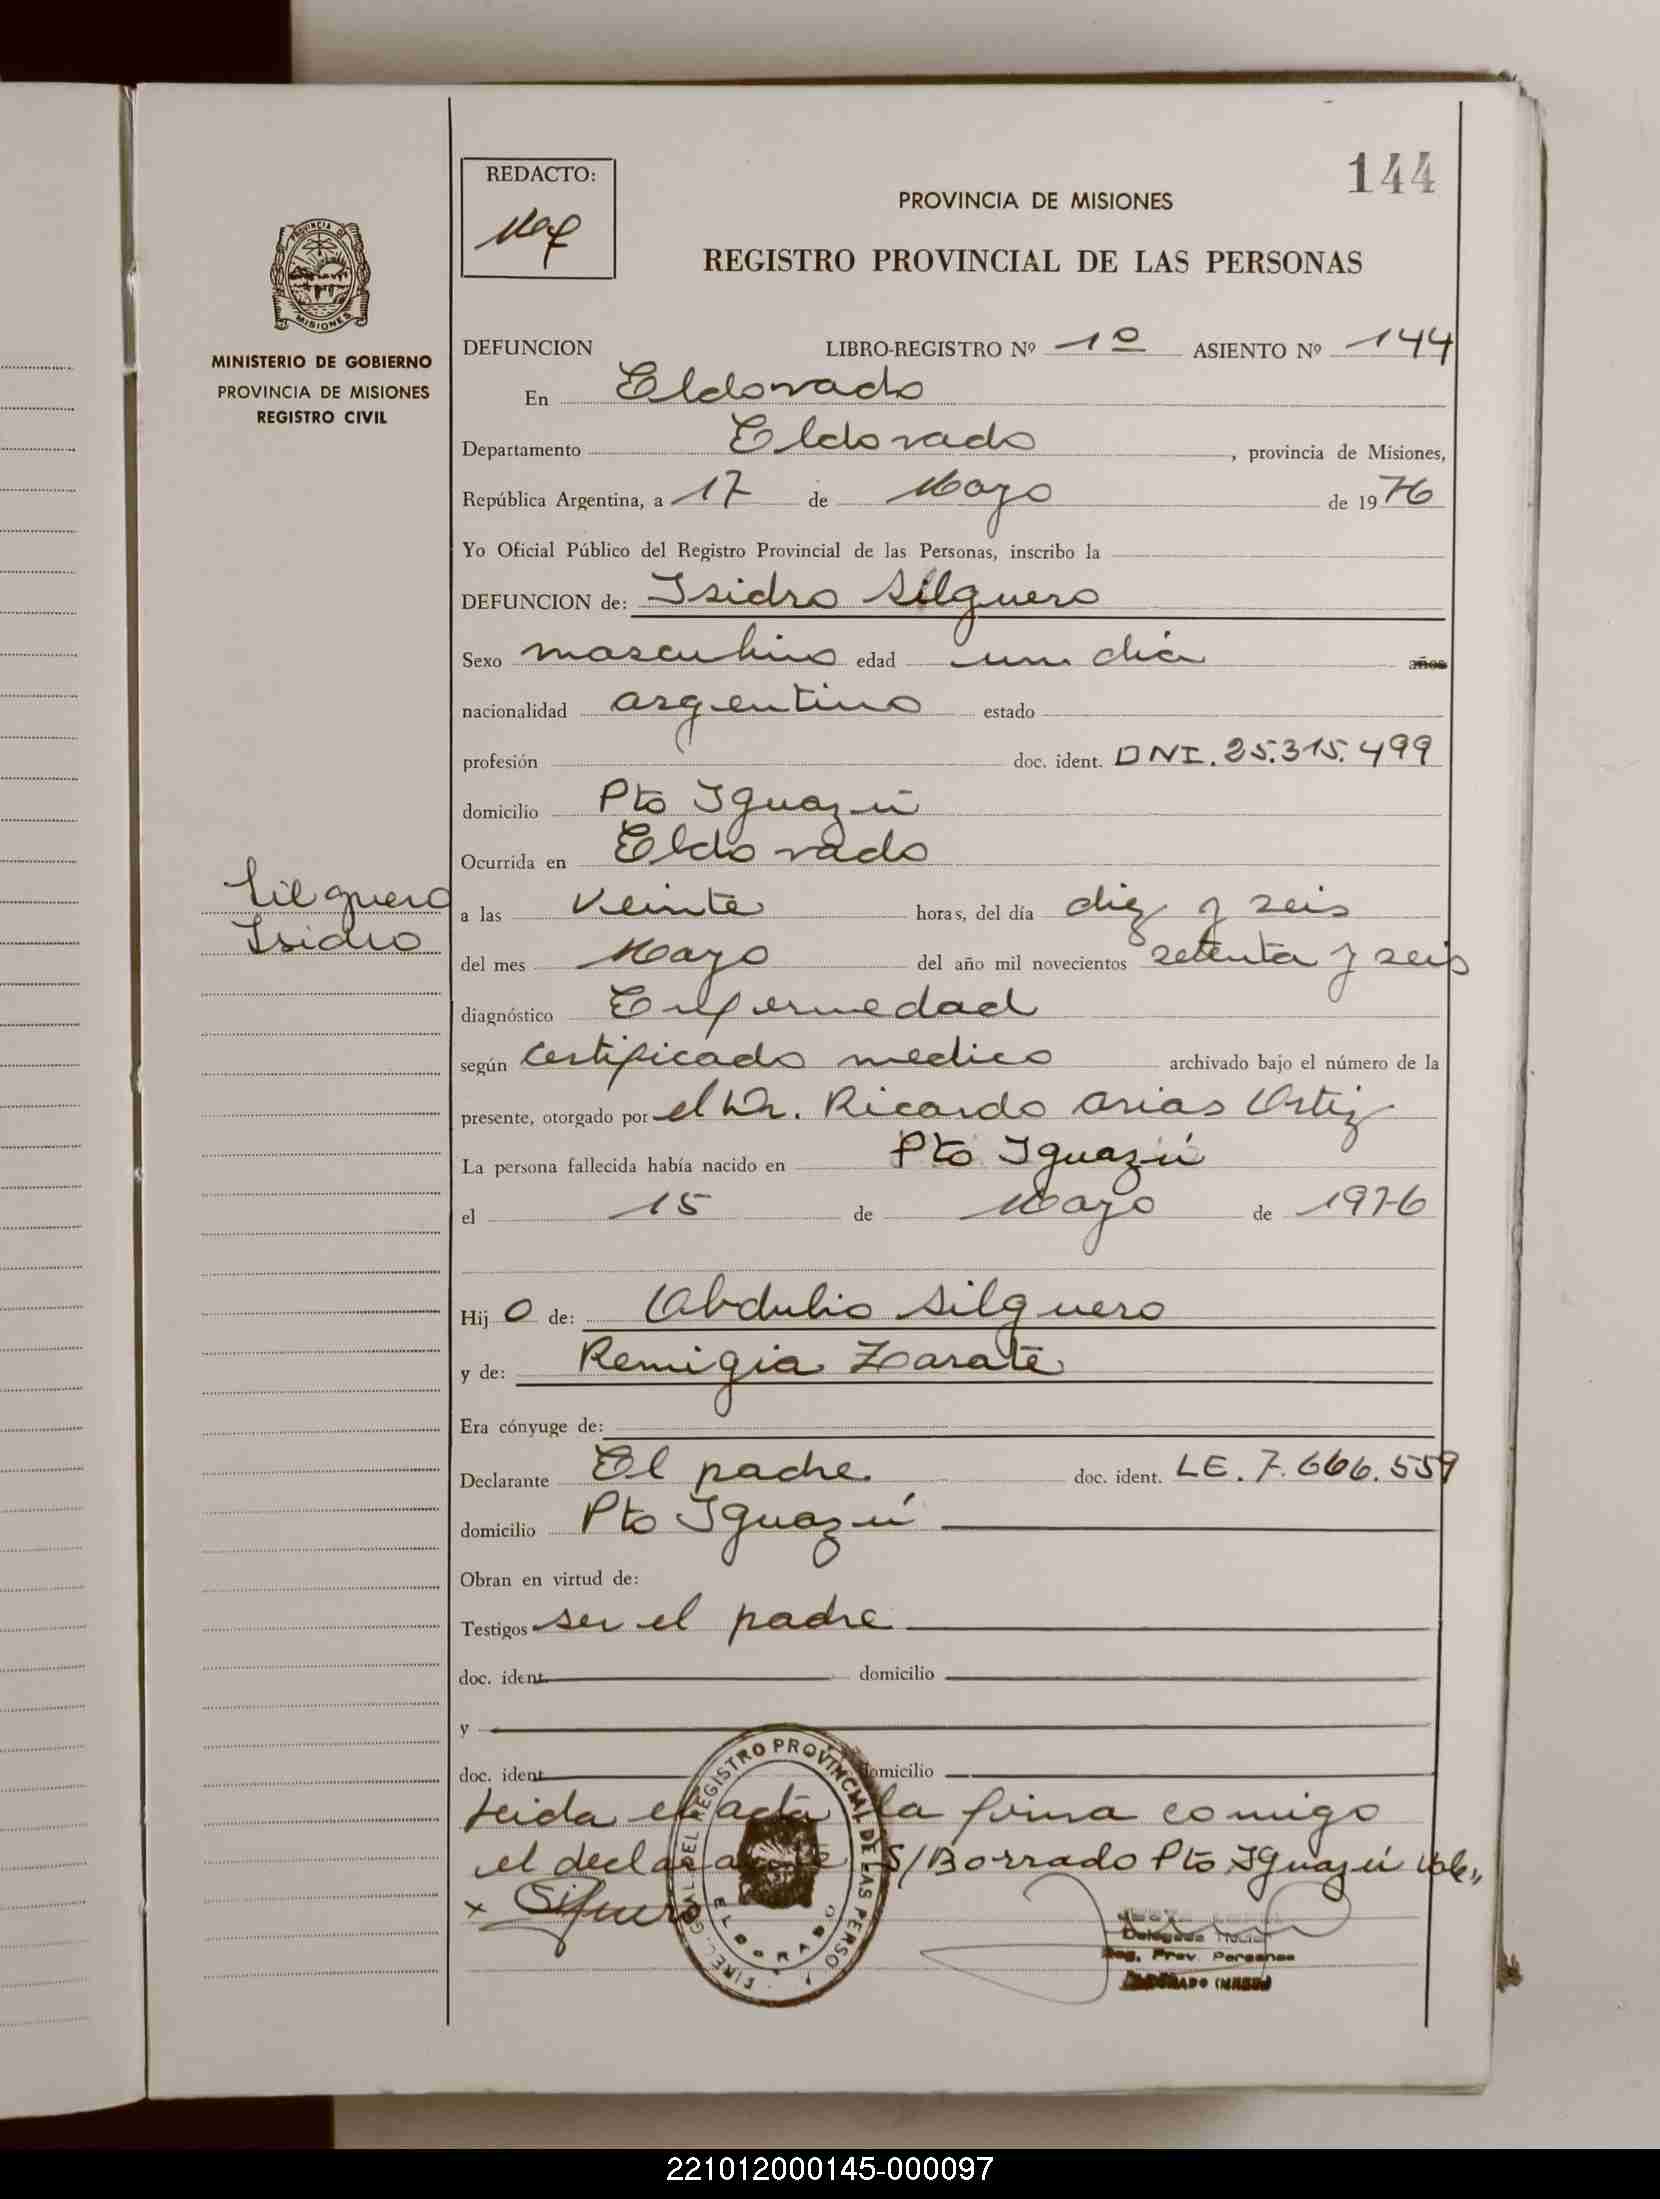 144
REDACTO:
PROVINCIA DE MISIONES
REGISTRO PROVINCIAL DE LAS PERSONAS
PROVINCIA DE
MISIONES
MINISTERIO DE GOBIERNO
PROVINCIA DE MISIONES
REGISTRO CIVIL
DEFUNCION LIBRO-REGISTRO Nº 1º ASIENTO Nº 144
En Eldorado
Departamento Eldorado, provincia de Misiones,
República Argentina, a 17 de Mayo de 1976
Yo Oficial Público del Registro Provincial de las Personas, inscribo la
DEFUNCION de: Isidro Silguero
Sexo masculino edad un día años
nacionalidad argentino estado
profesión doc. ident. DNI. 25.315.499
domicilio Pto Iguazú
Ocurrida en Eldorado
Silguero
Isidro
a las veinte horas, del día diez y seis
del mes Mayo del año mil novecientos setenta y seis
diagnóstico Enfermedad
según certificado medico archivado bajo el número de la
presente, otorgado por el Dr. Ricardo Arias Ortiz
La persona fallecida había nacido en Pto Iguazú
el 15 de Mayo de 1976
Hij o de: Obdulio Silguero
y de: Remigia Zarate
Era cónyuge de:
Declarante El padre. doc. ident. LE. 7.666.559
domicilio Pto Iguazú
Obran en virtud de:
Testigos ser el padre
doc. ident. domicilio
y
doc. ident. domicilio
Leida el acta la firma comigo
el declarante S/Borrado Pto Iguazú Vale,,
x Silguero
DIREC. GRAL. DEL REGISTRO PROVINCIAL DE LAS PERSO
ELDORADO
Delegada Titular
Reg. Prov. Personas
ELDORADO (MNES)
221012000145-000097